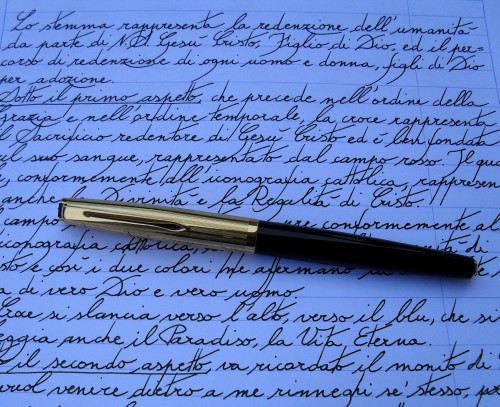 Lo stemma rappresenta la redenzione dell'umanità
da parte di N.S. Gesù Cristo, Figlio di Dio, ed il per-
corso di redenzione di ogni uomo e donna, figli di Dio
per adozione.
Sotto il primo aspetto, che precede nell'ordine della
Grazia e nell'ordine temporale, la croce rappresenta
il Sacrificio redentore di Gesù Cristo ed è ben fondata
sul suo sangue, rappresentato dal campo rosso. Il
conformemente all'iconografia cattolica,
anche la Divinità e la Regalità di Cristo.
campo conformemente al
iconografia cattolica, di
e così i due colori affermano
di vero Dio e vero uomo.
Croce si slancia verso l'alto, verso il blu, che
anche il Paradiso, la Vita Eterna.
il secondo aspetto, va ricordato il monito di
vuol venire dietro a me rinneghi se' stesso,